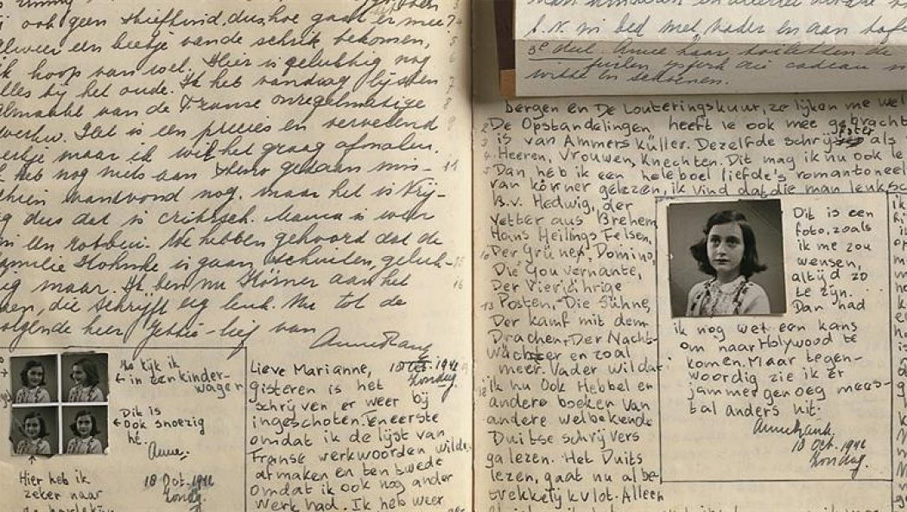 ook geen stiefkind, dus hoe gaat er mee?
alweer een beetje van de schrik bekomen,
ik hoop van wel. Hier is gelukkig nog
alles bij het oude. Ik het vandaag lijsten
gemaakt van de Franse onregelmatige
werkw. Het is een precies en vervelend
werkje maar ik wil het graag afmaken.
Ik heb nog niets aan steno gedaan mis-
schien vanavond nog. maar het is Vrij-
dag dus dat is critisch. Mama is weer
in een robbui. We hebben gehoord dat de
familie is gaan schuilen, geluk-
kig maar. Ik ben nu Körner aan het
lezen, die schrijft erg leuk. Nu tot de
volgende keer Gehus-lief van
Anne Frank
Nu kijk ik
← in een kinder-
wagen
Dit is
← ook snoezig
hé.
Anne.
18 Oct. 1942
Zondag.
Hier heb ik
zeker naar
Lieve Marianne, 18 Oct. 1942
Zondag.
gisteren is het
schrijven er weer bij
ingeschoten. Ten eerste
omdat ik de lijst van
Franse werkwoorden wilde
afmaken en ten twede
omdat ik ook nog ander
werk had. Ik heb weer
b.v. in bed met vader en aan tafel
3e deel. Anne haar toiletten de
cadeau
witte en schoenen.
bergen en De Louteringskuur, ze lijken me wel
De Opstandelingen heeft ie ook mee gebracht
is van Ammers Küller. Dezelfde schrijfster als
Heeren, Vrouwen, Knechten. Dit mag ik nu ook le
Dan heb ik een heleboel liefde's romantoneel
van Körner gelezen, ik vind dat die man leuk sc
B.v. Hedwig, der
Vetter aus Bremen
Hans Heilings Felsen,
Der Grüne, Domino,
Die Gouvernante,
Der Vierjährige
Posten, Die Sühne,
Der Kamf mit dem
Drachen, Der Nacht-
wachter en zoal
meer. Vader wil dat
ik nu ook Hebbel en
andere boeken van
andere welbekende
Duitse schrijvers
ga lezen. Het Duits
lezen, gaat nu al be-
trekkelijk vlot. Alleen
Dit is een
foto, zoals
ik me zou
wensen,
altijd zo
te zijn.
Dan had
ik nog wel een kans
om naar Holywood te
komen. Maar tegen-
woordig zie ik er
jammer genoeg mees-
tal anders uit.
Annefrank.
18 Oct. 1942
Zondag.